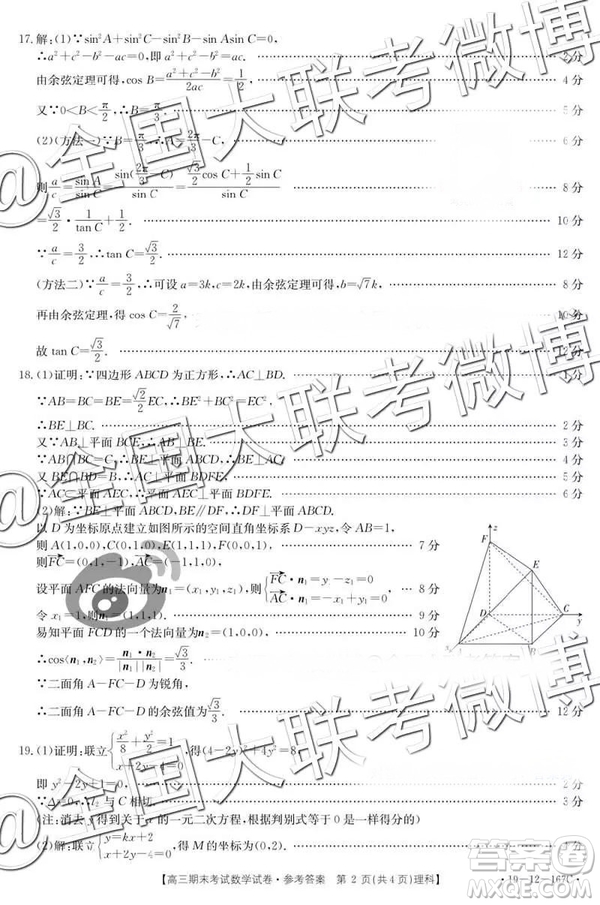 17.解:(1)∵sin²A+sin²C−sin²B−sin Asin C=0,
∴a²+c²−b²−ac=0,即a²+c²−b²=ac. 2分
由余弦定理可得,cos B=(a²+c²−b²)/2ac= 4分
又∵0<B<π/2,∴B=π/3. 5分
(2)(方法一)∵B=π/3,∴A=2π/3−C. 6分
则a/c=sin A/sin C=sin(2π/3−C)/sin C=(√3/2 cos C+1/2 sin C)/sin C 8分
=√3/2·1/tan C+1/2. 10分
∵a/c=3/2,∴tan C=√3/2. 12分
(方法二)∵a/c=3/2,∴可设a=3k,c=2k,由余弦定理可得,b=√7k, 8分
再由余弦定理,得cos C=2/√7, 10分
故tan C=√3/2. 12分
18.(1)证明:∵四边形ABCD为正方形,∴AC⊥BD.
∵AB=BC=BE=√2/2 EC,∴BE²+BC²=EC²,
∴BE⊥BC. 2分
又∵AB⊥平面BCE,∴AB⊥BE. 3分
∵AB∩BC=B,∴BE⊥平面ABCD,∴BE⊥AC. 4分
又BE∩BD=B,∴AC⊥平面BDFE. 5分
∵AC⊂平面AEC,∴平面AEC⊥平面BDFE. 6分
(2)解:∵BE⊥平面ABCD,BE∥DF,∴DF⊥平面ABCD.
以D为坐标原点建立如图所示的空间直角坐标系D−xyz,令AB=1,
则A(1,0,0),C(0,1,0),E(1,1,1),F(0,0,1), 7分
则FC=(0,1,−1),AC=(−1,1,0).
设平面AFC的法向量为n₁=(x₁,y₁,z₁),则{FC·n₁=y₁−z₁=0, AC·n₁=−x₁+y₁=0. 8分
令x₁=1,则n₁=(1,1,1). 9分
易知平面FCD的一个法向量为n₂=(1,0,0), 10分
∴cos⟨n₁,n₂⟩=n₁·n₂/|n₁||n₂|=√3/3.
∵二面角A−FC−D为锐角,
∴二面角A−FC−D的余弦值为√3/3. 12分
F
E
D
C
y
19.(1)证明:联立{x²/8+y²/2=1, x+2y−4=0, 得(4−2y)²+4y²=8,
即y²−2y+1=0. 2分
∵Δ=0,∴l₂与C相切. 3分
(注:消去y得到关于x的一元二次方程,根据判别式等于0是一样得分的)
(2)解:联立{y=kx+2, x+2y−4=0, 得M的坐标为(0,2).
【高三期末考试数学试卷·参考答案 第2页(共4页)理科】 ·19−12−167C·
@全国大联考微博
@全国大联考微博
@全国大联考微博
答案圈
MXQE.COM